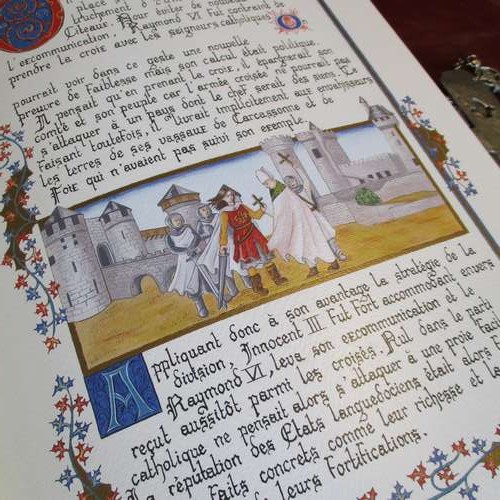 Citeaux. Pour éviter de nouveau
L'excommunication, Raymond VI fut contraint de
prendre la croix avec les seigneurs catholiques.
pourrait voir dans ce geste une nouvelle
preuve de faiblesse mais son calcul était politique.
Il pensait qu'en prenant la croix, il épargnerait son
comté et son peuple car l'armée croisée ne pourrait pas
s'attaquer à un pays dont le chef serait des siens. Ce
faisant toutefois, il ouvrait implicitement aux envahisseurs
les terres de ses vassaux de Carcassonne et de
Foix qui n'avaient pas suivi son exemple.
Appliquant donc à son avantage la stratégie de la
division, Innocent III fut fort accommodant envers
Raymond VI, leva son excommunication et le
reçut aussitôt parmi les croisés. Nul dans le parti
catholique ne pensait alors s'attaquer à une proie
La réputation des États Languedociens était alors
faits concrets comme leur richesse et la
de leurs fortifications.